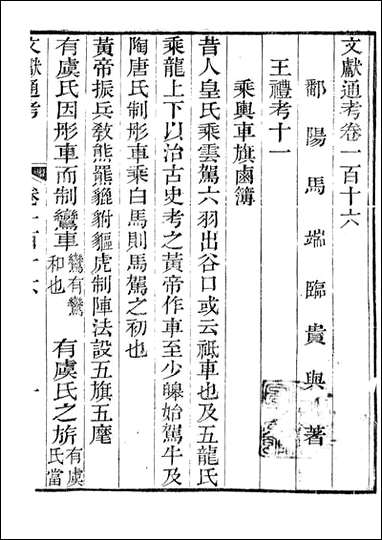 文獻通考卷一百十六
鄱陽馬端臨貴與著
王禮考十一
乘輿車旗鹵簿
昔人皇氏乘雲駕六羽出谷口或云祗車也及五龍氏
乘龍上下以治古史考之黃帝作車至少皞始駕牛及
陶唐氏制彤車乘白馬則馬駕之初也
黃帝振兵敎熊羆貔貅貙虎制陣法設五旗五麾
有虞氏因彤車而制鸞車鸞有鸞和也有虞氏之旂有虞氏當
文獻通考
卷一百十六
一